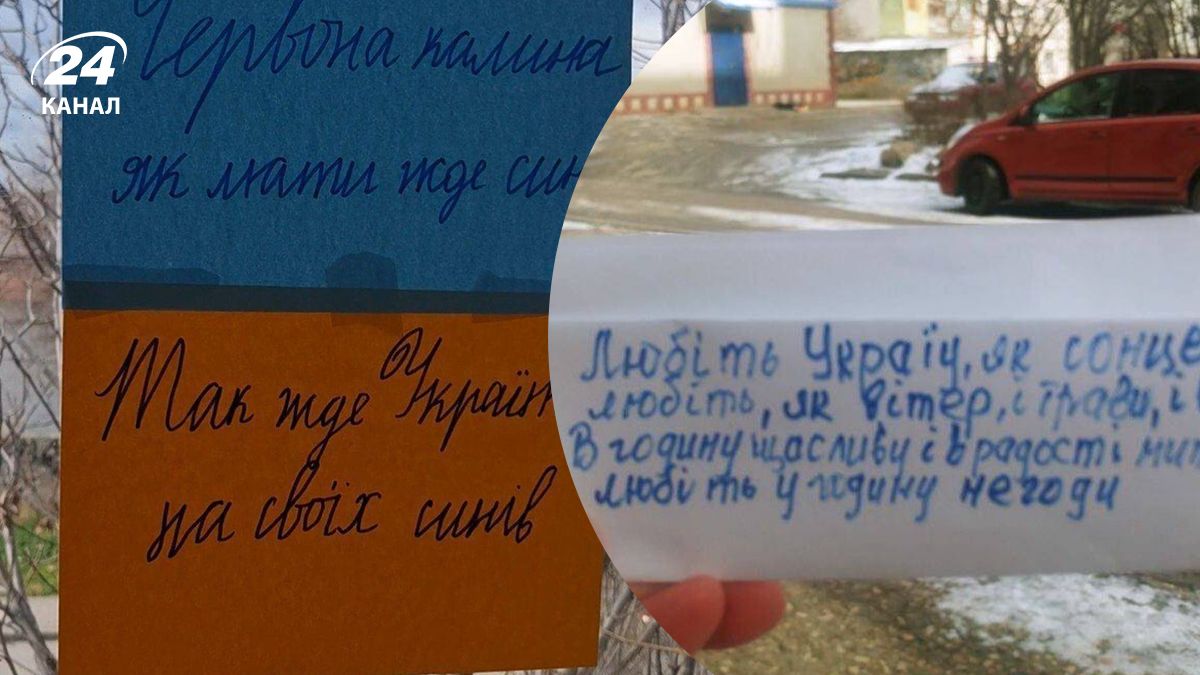 24
КАНАЛ
Червона калина
як мати жде син
Так жде Україн
на своїх синів
Любіть Украіу, як сонце
любіть, як вітер, і трави, і
В годину щасливу і в радості мит
любіть у годину негоди